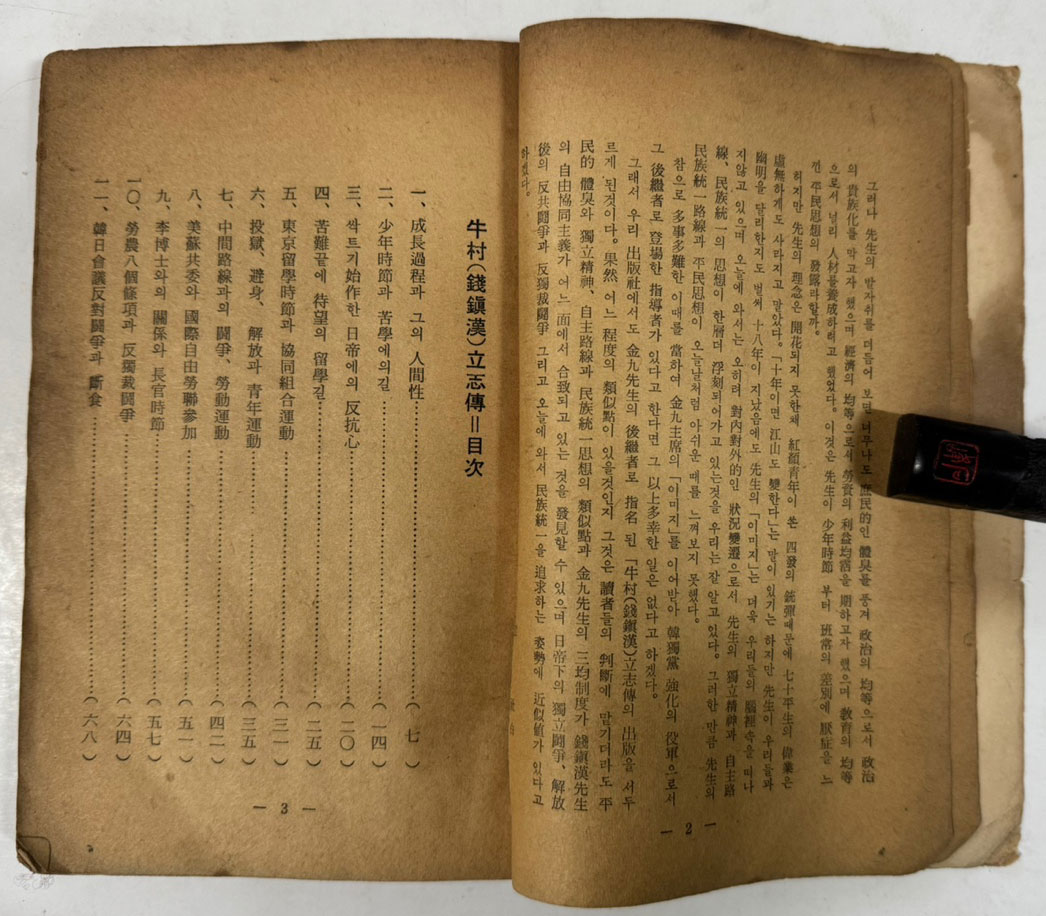 그러나 先生의 발자취를 더듬어 보면 너무나도 庶民的인 體臭를 풍겨 政治의 均等으로서 政治
의 貴族化를 막고자 했으며 經濟의 均等으로서 勞資의 利益均霑을 期하고자 했으며 敎育의 均等
으로서 널리 人材를 養成하려고 했었다. 이것은 先生이 少年時節 부터 班常의 差別에 厭症을 느
낀 平民思想의 發露라할까.
허지만 先生의 理念은 開花되지 못한채 紅顔靑年이 쏜 四發의 銃彈때문에 七十平生의 偉業은
虛無하게도 사라지고 말았다. 「十年이면 江山도 變한다」는 말이 있기는 하지만 先生이 우리들과
幽明을 달리한지도 벌써 十八年이 지났음에도 先生의 「이미지」는 더욱 우리들의 腦裡속을 떠나
지않고 있으며 오늘에 와서는 오히려 對內對外的인 狀況變遷으로서 先生의 獨立精神과 自主路
線、民族統一의 思想이 한層더 浮刻되어가고 있는것을 우리는 잘 알고 있다. 그러한 만큼 先生의
民族統一路線과 平民思想이 오늘날처럼 아쉬운 때를 느껴보지 못했다.
참으로 多事多難한 이때를 當하여 金九主席의 「이미지」를 이어받아 韓獨黨 強化의 役軍으로서
그 後繼者로 登場한 指導者가 있다고 한다면 그 以上多幸한 일은 없다고 하겠다.
그래서 우리 出版社에서도 金九先生의 後繼者로 指名 된 「牛村(錢鎭漢)立志傳의 出版을 서두
르게 된것이다. 果然 어느 程度의 類似點이 있을것인지 그것은 讀者들의 判斷에 맡기더라도 平
民的 體臭와 獨立精神、自主路線과 民族統一思想의 類似點과 金九先生의 三均制度가 錢鎭漢先生
의 自由協同主義가 어느 面에서 合致되고 있는 것을 發見할 수 있으며 日帝下의 獨立鬪爭、解放
後의 反共鬪爭과 反獨裁鬪爭 그리고 오늘에 와서 民族統一을 追求하는 姿勢에 近似値가 있다고
하겠다.
— 2 —
牛村(錢鎭漢)立志傳=目次
一、成長過程과 그의 人間性……(七)
二、少年時節과 苦學에의길……(一四)
三、싹트기始作한 日帝에의 反抗心……(二〇)
四、苦難끝에 待望의 留學길……(二五)
五、東京留學時節과 協同組合運動……(三一)
六、投獄、避身、解放과 靑年運動……(三五)
七、中間路線과의 鬪爭、勞動運動……(四二)
八、美蘇共委와 國際自由勞聯參加……(五一)
九、李博士와의 關係와 長官時節……(五七)
一〇、勞農八個條項과 反獨裁鬪爭……(六四)
一一、韓日會議反對鬪爭과 斷食……(六八)
— 3 —